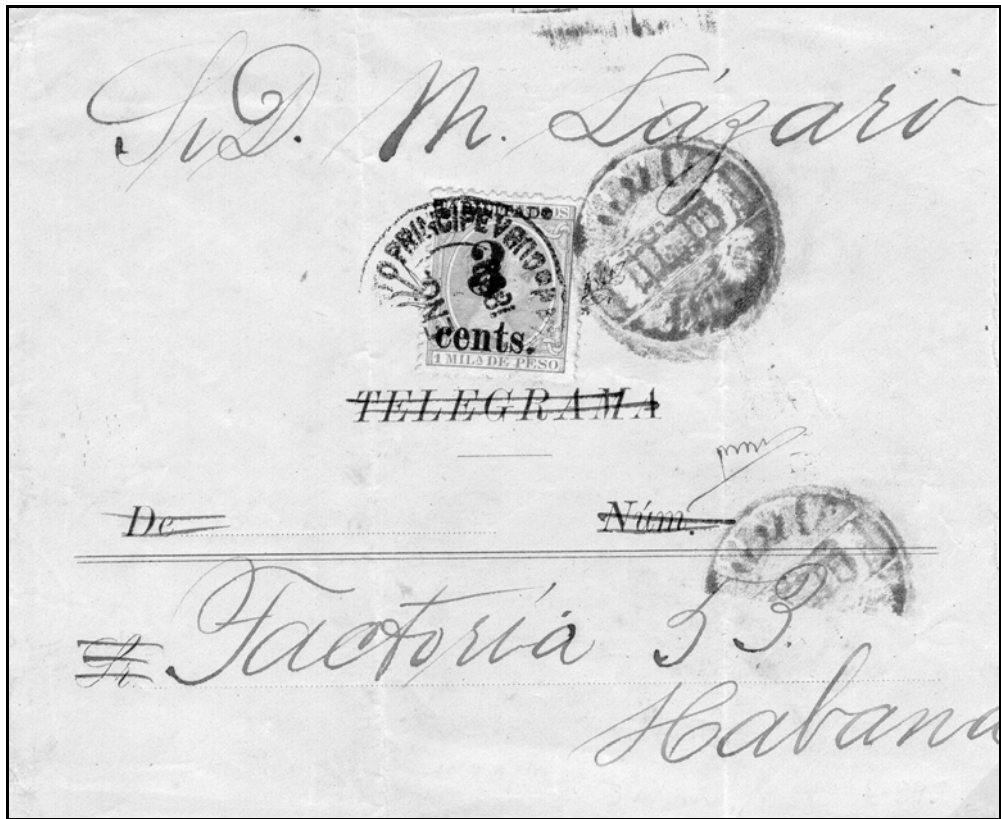 Sr D. M. Lázaro
HABILITADO
3
cents.
1 MILA DE PESO
PRINCIPE
CUBA
TELEGRAMA
De
Núm.
Sr.
Factoría 53.
Habana